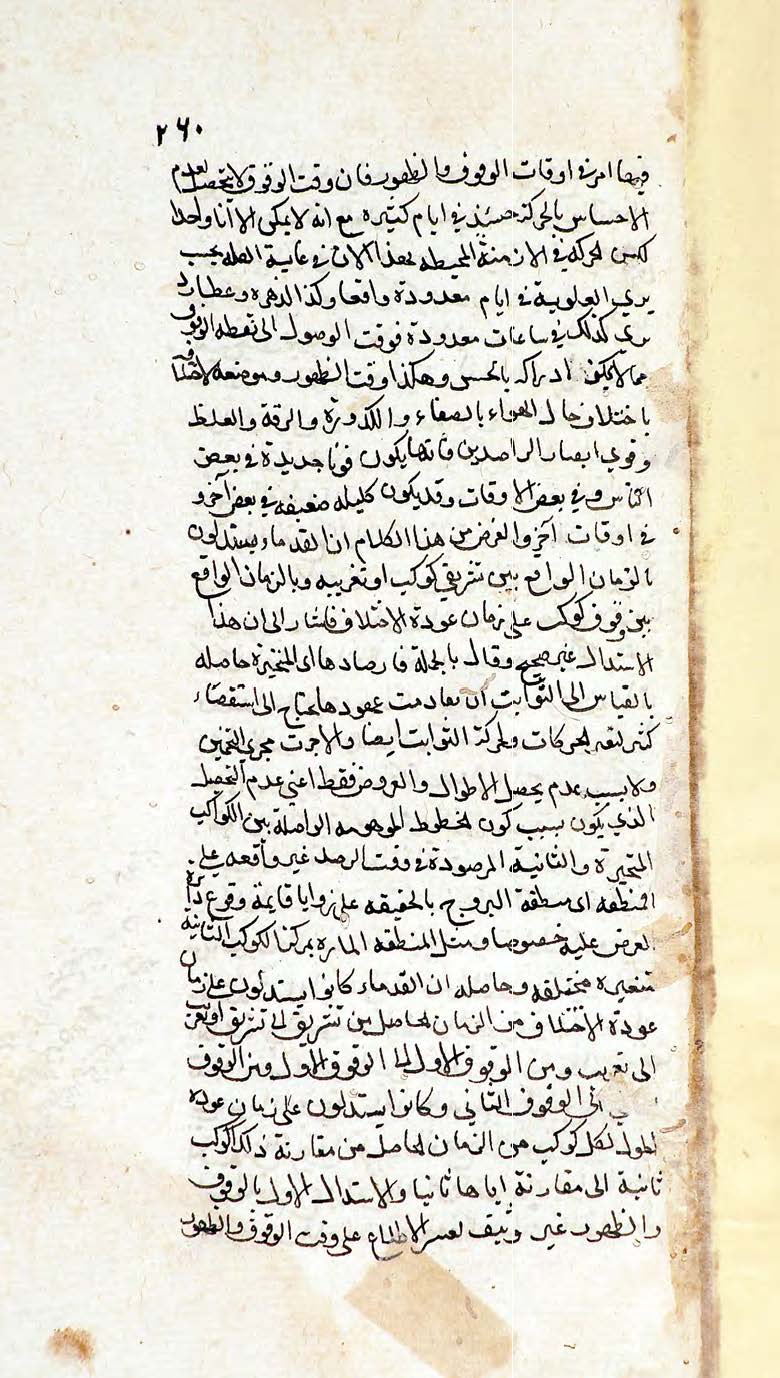 ٢٦٠
فيهما امر في اوقات الوقوف والظهور فان وقت الوقوف لا يتحصل لعدم
الاحساس بالحركة حينئذ في ايام كثيرة مع انه لا يمكن الا آنا واحدا
لكن الحركة في الازمنة المحيطه بهذا الان في غاية القله بحيث
يرى العلوية في ايام معدودة واقفا وكذا الزهره وعطارد
يرى كذلك في ساعات معدودة فوقت الوصول الى نقطه الوقوف
مما لا يمكن ادراكه بالحس وهكذا وقت الظهور وموضعه لاختلافه
باختلاف حال الهواء بالصفاء والكدورة والرقة والغلظ
وقوي ابصار الراصدين فانها يكون قويا حديدة في بعض
الناس وفي بعض الاوقات وقد يكون كليله ضعيفه في بعض آخر و
في اوقات آخر والغرض من هذا الكلام ان القدماء يستدلون
بالزمان الواقع بين تشريقي كوكب او تغريبيه وبالزمان الواقع
بين وقوفي كوكب على زمان عودة الاختلاف فاشار الى ان هذا
الاستدلال غير صحيح وقال بالجملة فارصادها اى المتحيرة حاصله
بالقياس الى الثوابت ان تقادمت عهودها يحتاج الى استقصاء
كثير لتغير الحركات ولحركة الثوابت ايضا والا جرت مجرى التخمين
ولا بسبب عدم تحصل الاطوال والعروض فقط اعني عدم التحصيل
الذي يكون بسبب كون الخطوط الموهومه الواصلة بين الكواكب
المتحيرة والثانية المرصودة في وقت الرصد غير واقعه على
المنطقه اى منطقة البروج بالحقيقه على زوايا قايمة وقوع دائرة
العرض عليه خصوصا وميل المنطقه المارة بمركز الكوكب الثانية
متغيره مختلفه وحاصله ان القدماء كانوا يستدلون على زمان
عودة الاختلاف من الزمان الحاصل من تشريق الى تشريق او تغريب
الى تغريب ومن الوقوف الاول الى الوقوف الاول ومن الوقوف
الى الوقوف الثاني وكانوا يستدلون على زمان عودة
الطول لكل كوكب من الزمان الحاصل من مقارنة ذلك الكوكب
ثانية الى مقارنة اياها ثانيا والاستدلال الاول بالوقوف
والظهور غير وثيق لعسر الاطلاع على وقت الوقوف والظهور